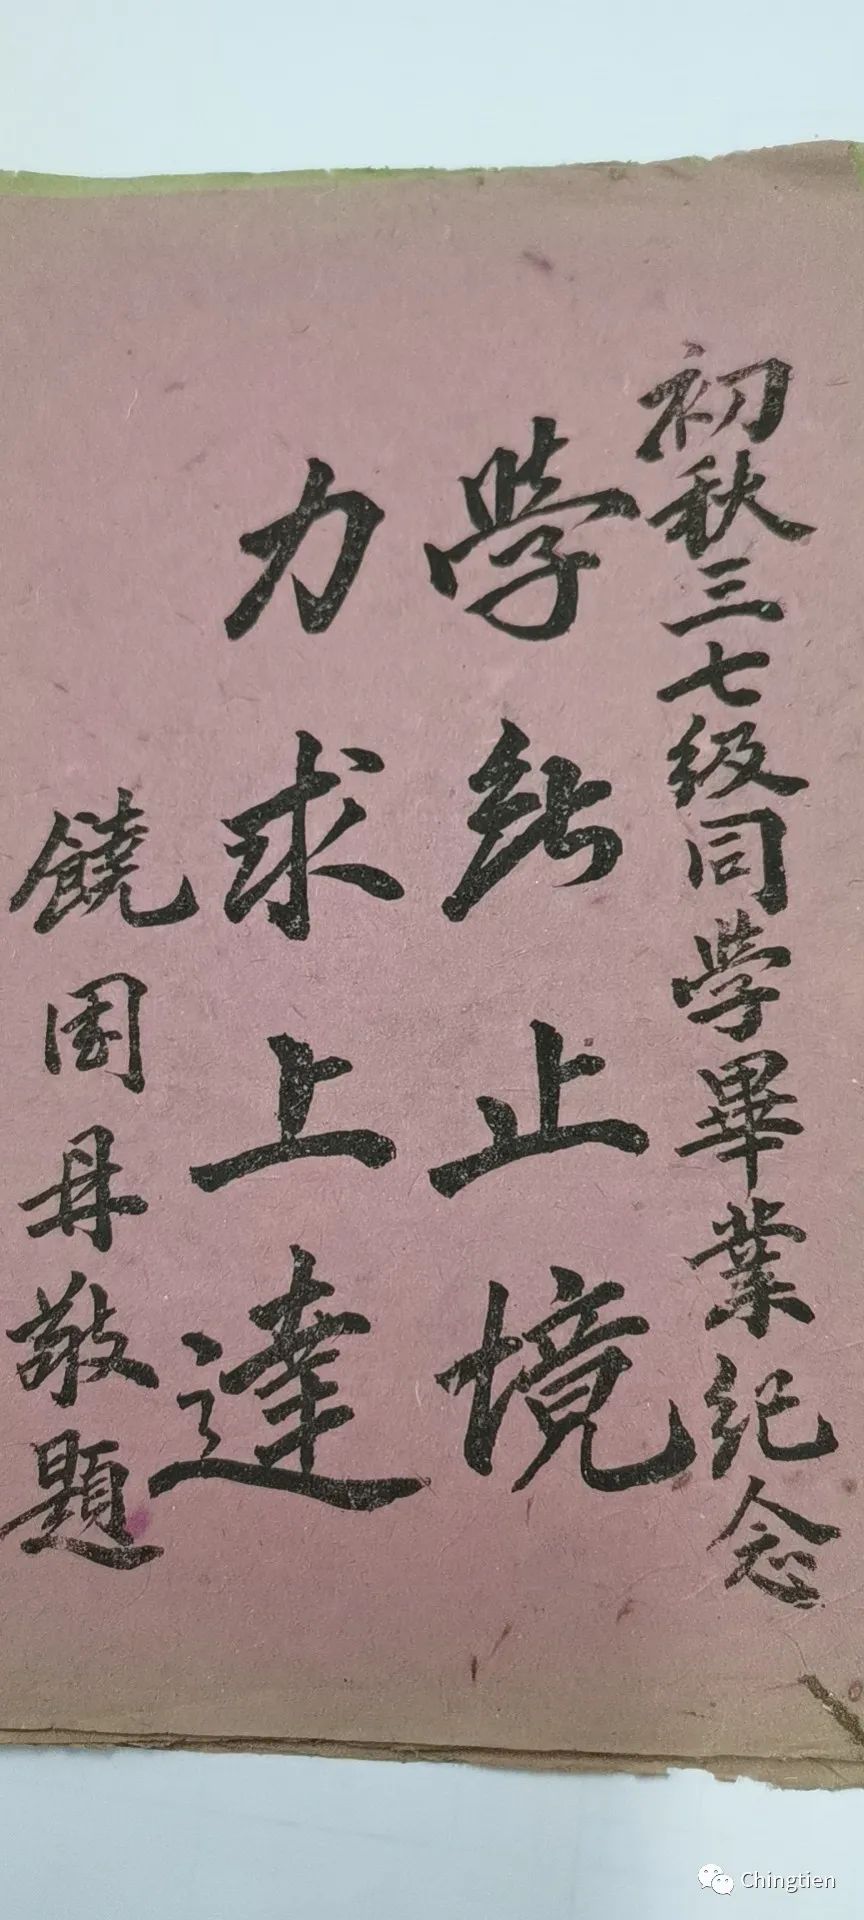 初秋三七級同學畢業紀念
學止境
力求上達
饒国敬題
Chingtien